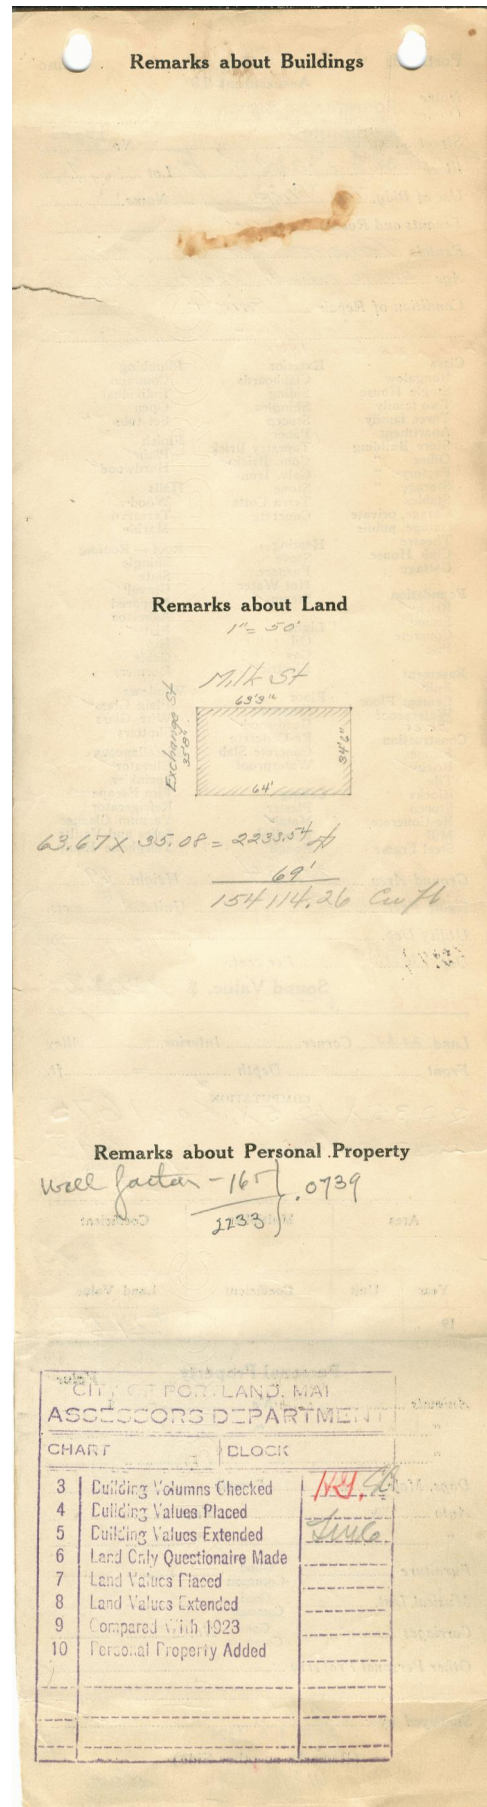 Remarks about Buildings
Remarks about Land
1" = 50'
Milk St
63'9"
Exchange St
35'8"
34'6"
64'
63.67 X 35.08 = 2233.54
69'
154114.26 Cu ft
Remarks about Personal Property
Wall factor - 165
2233
.0739
CITY OF PORTLAND, MAI
ASSESSORS DEPARTMENT
CHART BLOCK
3 Building Volumns Checked
4 Building Values Placed
5 Building Values Extended
6 Land Only Questionaire Made
7 Land Values Placed
8 Land Values Extended
9 Compared With 1923
10 Personal Property Added